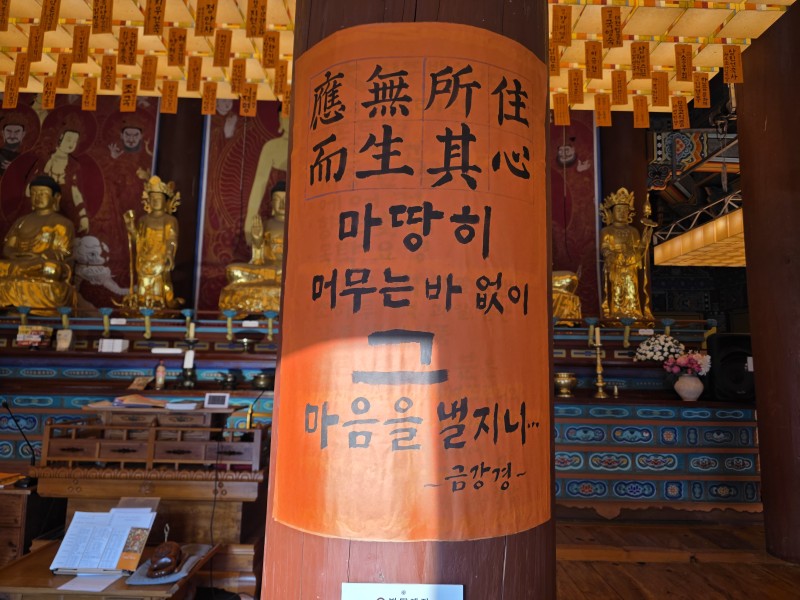 應無所住
而生其心
마땅히
머무는 바 없이
그
마음을 낼지니...
~금강경~